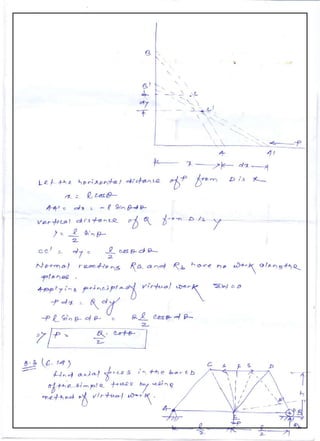 B
B'
dy
A
A'
P
x
dx
Let the horizontal distance of P from D is x
x = l cosθ
AA' = dx = - l Sinθ dθ
Vertical distance of Q from D is y
y = l/2 Sinθ
CC' = dy = l/2 cosθ dθ
Normal reactions Ra and Rb have no work along the
planes.
Applying principle of virtual work
P dx = Q dy
- P l Sinθ dθ = Q l/2 cosθ dθ
P = Q/2 cotθ
find axial forces in the bars D
of the simple truss by using
method of virtual work.
C
S
D
A
B
E
P
h
l/2
l/2